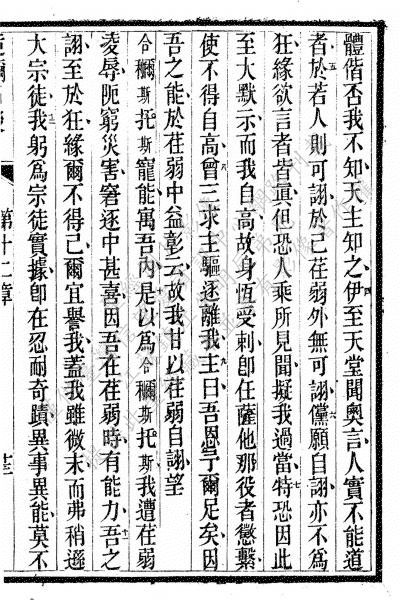 體偕否我不知天主知之伊至天堂聞奧言人實不能道
者於若人則可詡於己荏弱外無可詡儻願自詡亦不爲
狂緣欲言者皆眞但恐人乘所見聞擬我過當特恐因此
至大默示而我自高故身恆受刺卽任薩他那役者懲繫
使不得自高曾三求主驅逐離我主曰吾恩于爾足矣因
吾之能於荏弱中益彰云故我甘以荏弱自詡望
合穪斯托斯寵能寓吾內是以爲合穪斯托斯我遭在弱
凌辱阨窮災害窘逐中甚喜因吾在荏弱時有能力吾之
詡至於狂緣爾不得已爾宜譽我蓋我雖微末而弗稍遜
大宗徒我躬爲宗徒實據卽在忍耐奇蹟異事異能莫不
第十二章